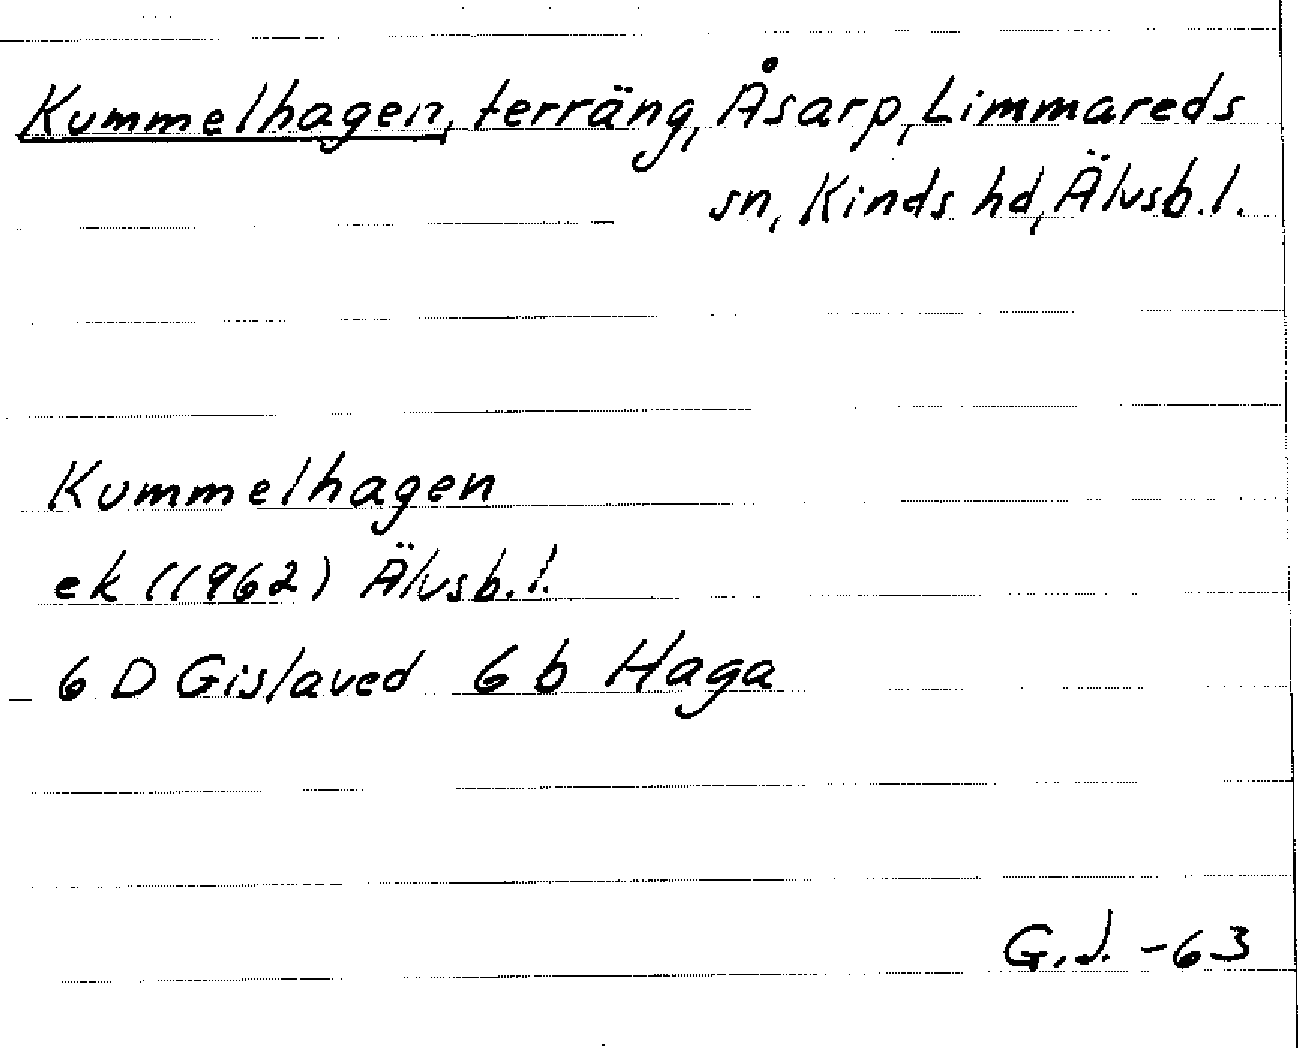 Kummelhagen, terräng, Åsarp, Limmareds
sn, Kinds hd, Älvsb.l.
Kummelhagen
ek (1962) Älvsb.l.
6 D Gislaved 6 b Haga
G.J. -63